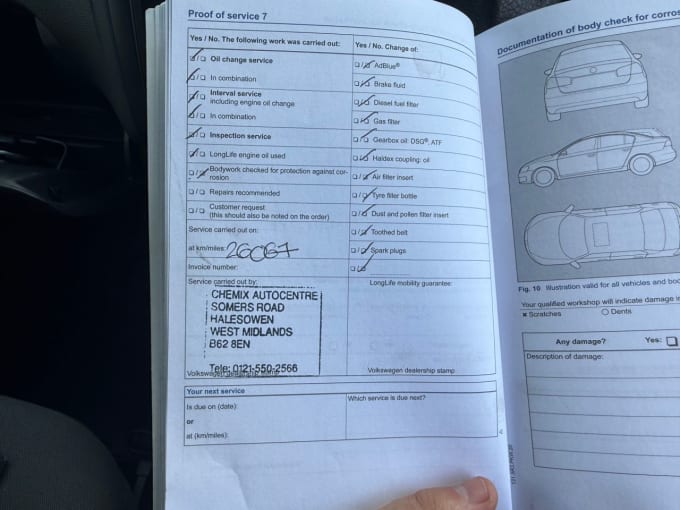 Proof of service 7
Yes / No. The following work was carried out:
Oil change service
In combination
Interval service
including engine oil change
In combination
Inspection service
LongLife engine oil used
Bodywork checked for protection against cor-
rosion
Repairs recommended
Customer request
(this should also be noted on the order)
Service carried out on:
at km/miles: 26067
Invoice number:
Service carried out by:
CHEMIX AUTOCENTRE
SOMERS ROAD
HALESOWEN
WEST MIDLANDS
B62 8EN
Tele: 0121-550-2566
Volkswagen dealership stamp
Yes / No. Change of:
AdBlue®
Brake fluid
Diesel fuel filter
Gas filter
Gearbox oil: DSG®, ATF
Haldex coupling: oil
Air filter insert
Tyre filler bottle
Dust and pollen filter insert
Toothed belt
Spark plugs
LongLife mobility guarantee:
Volkswagen dealership stamp
Your next service
Is due on (date):
or
at (km/miles):
Which service is due next?
Documentation of body check for corros
Fig. 10 Illustration valid for all vehicles and bod
Your qualified workshop will indicate damage in
x Scratches
O Dents
Any damage? Yes:
Description of damage: